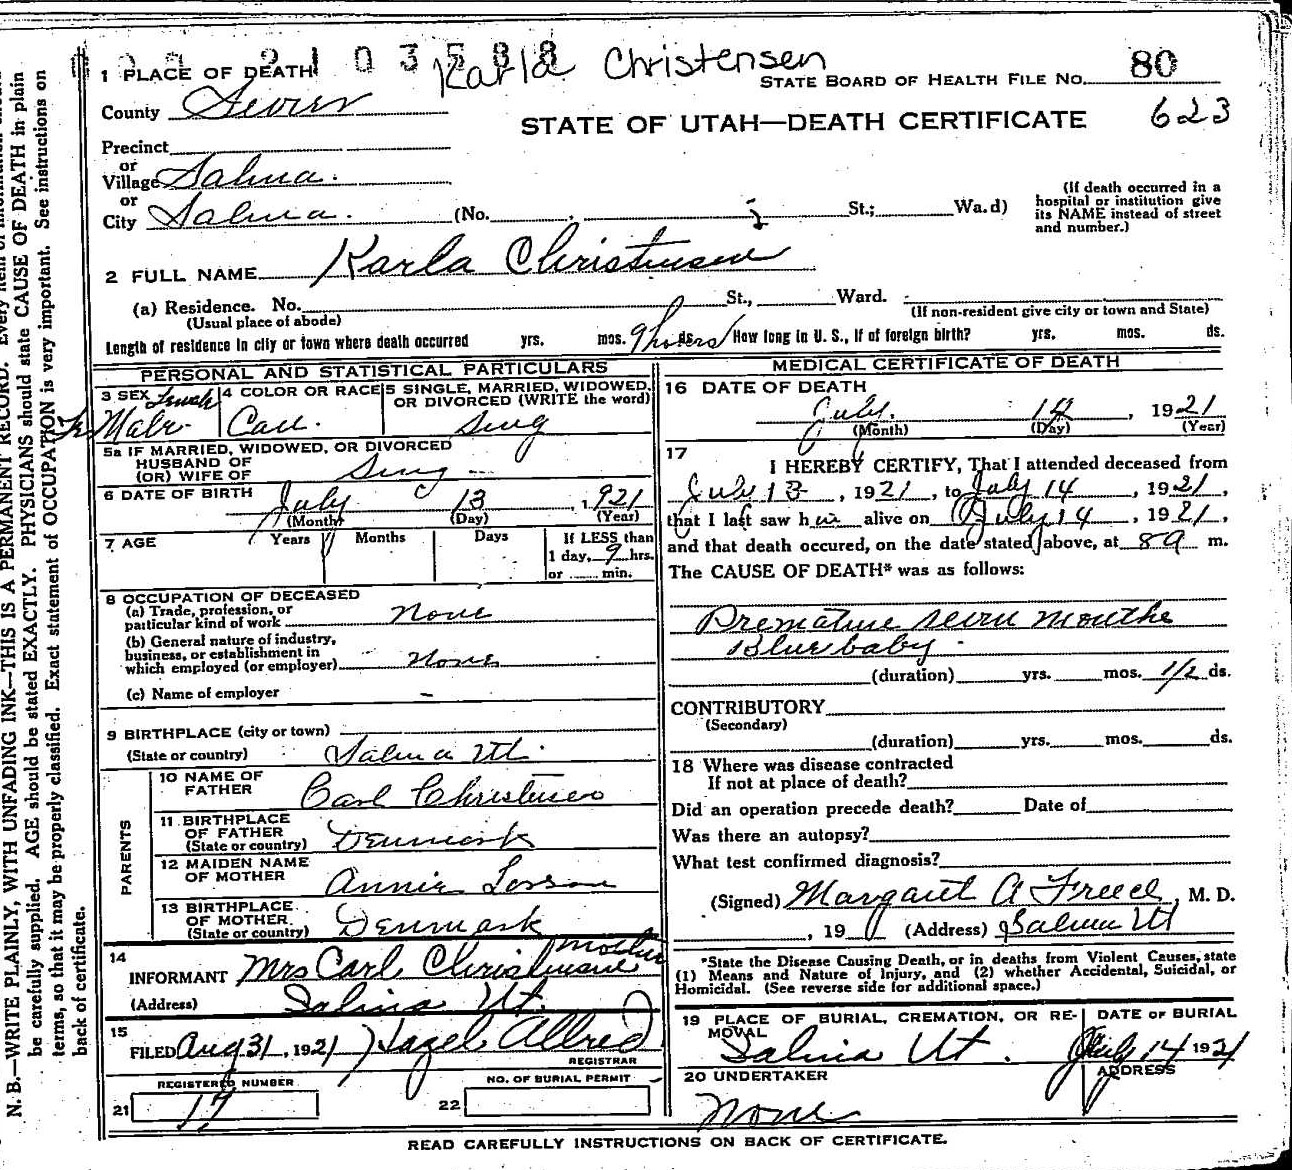 2 1 0 3 5 8 8
Karla Christensen
1 PLACE OF DEATH
STATE BOARD OF HEALTH FILE No. 80
County Sevier
STATE OF UTAH—DEATH CERTIFICATE 623
Precinct
or
Village Salina.
or
City Salina. (No. , St.; Wa.d)
(If death occurred in a
hospital or institution give
its NAME instead of street
and number.)
2 FULL NAME Karla Christensen
(a) Residence. No. St., Ward.
(Usual place of abode)
(If non-resident give city or town and State)
Length of residence in city or town where death occurred yrs. mos. 9 hours ds. How long in U. S., if of foreign birth? yrs. mos. ds.
PERSONAL AND STATISTICAL PARTICULARS
3 SEX
Male
4 COLOR OR RACE
Cau.
5 SINGLE, MARRIED, WIDOWED,
OR DIVORCED (WRITE the word)
Sing
5a IF MARRIED, WIDOWED, OR DIVORCED
HUSBAND OF
(OR) WIFE OF Sing
6 DATE OF BIRTH July 13, 1921
(Month) (Day) (Year)
7 AGE Years Months Days If LESS than
1 day, 9 hrs.
or min.
8 OCCUPATION OF DECEASED
(a) Trade, profession, or
particular kind of work None
(b) General nature of industry,
business, or establishment in
which employed (or employer) None
(c) Name of employer –
9 BIRTHPLACE (city or town)
(State or country) Salina Ut.
PARENTS
10 NAME OF
FATHER Carl Christensen
11 BIRTHPLACE
OF FATHER
(State or country) Denmark
12 MAIDEN NAME
OF MOTHER Annie
13 BIRTHPLACE
OF MOTHER
(State or country) Denmark
14
INFORMANT Mrs Carl Christensen mother
(Address) Salina Ut.
15
FILED Aug 31, 1921 Hazel Allred
REGISTRAR
REGISTERED NUMBER
21 17
NO. OF BURIAL PERMIT
22
MEDICAL CERTIFICATE OF DEATH
16 DATE OF DEATH
July 14, 1921
(Month) (Day) (Year)
17
I HEREBY CERTIFY, That I attended deceased from
July 13, 1921, to July 14, 1921,
that I last saw h alive on July 14, 1921,
and that death occured, on the date stated above, at 8 a m.
The CAUSE OF DEATH* was as follows:
Premature seven months
Blue baby
(duration) yrs. mos. 1/2 ds.
CONTRIBUTORY
(Secondary)
(duration) yrs. mos. ds.
18 Where was disease contracted
If not at place of death?
Did an operation precede death? Date of
Was there an autopsy?
What test confirmed diagnosis?
(Signed) Margaret A Freece, M. D.
, 19 (Address) Salina Ut
*State the Disease Causing Death, or in deaths from Violent Causes, state
(1) Means and Nature of Injury, and (2) whether Accidental, Suicidal, or
Homicidal. (See reverse side for additional space.)
19 PLACE OF BURIAL, CREMATION, OR RE-
MOVAL
Salina Ut.
DATE OF BURIAL
July 14 1921
20 UNDERTAKER
None
ADDRESS
READ CAREFULLY INSTRUCTIONS ON BACK OF CERTIFICATE.
N. B.—WRITE PLAINLY, WITH UNFADING INK—THIS IS A PERMANENT RECORD. Every item of information should
be carefully supplied. AGE should be stated EXACTLY. PHYSICIANS should state CAUSE OF DEATH in plain
terms, so that it may be properly classified. Exact statement of OCCUPATION is very important. See instructions on
back of certificate.